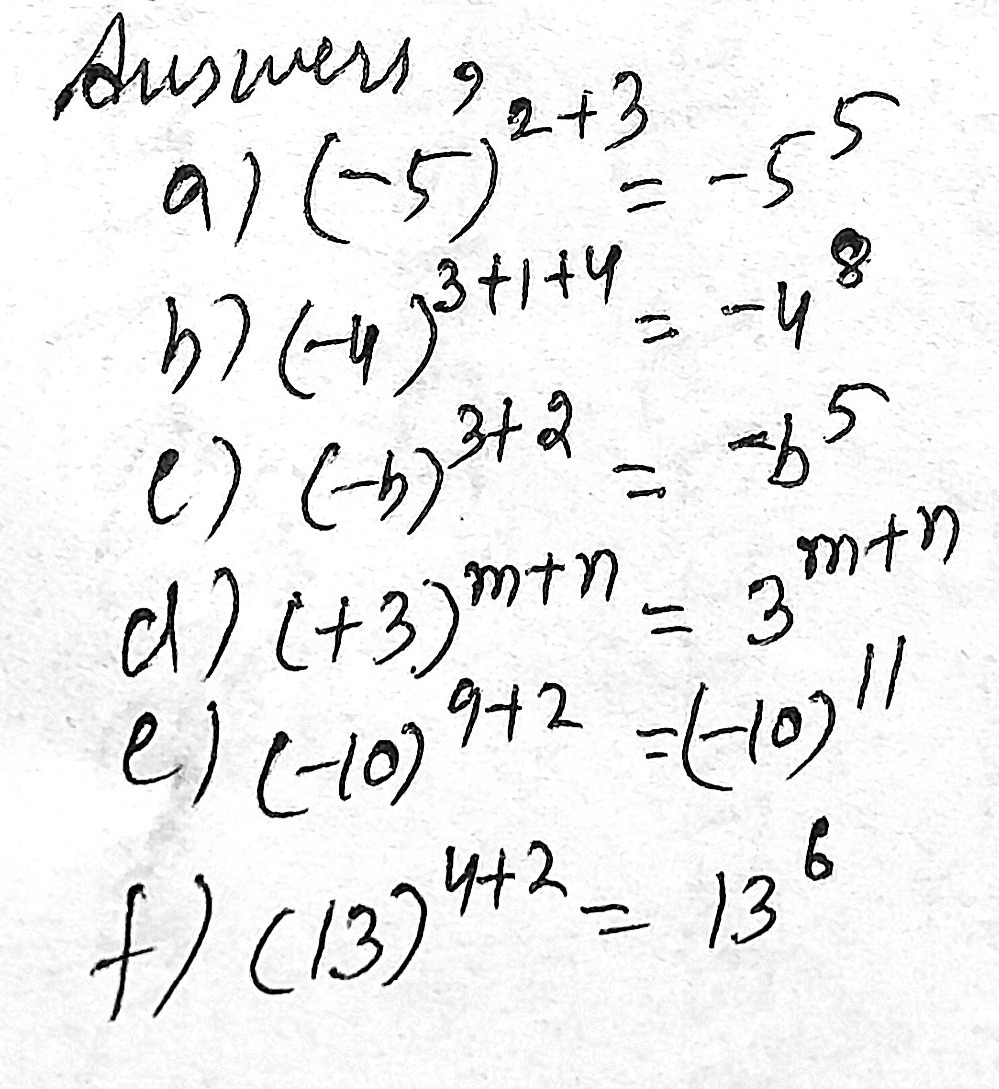 Answers,
a) (-5)²⁺³ = -5⁵
b) (-4)³⁺¹⁺⁴ = -4⁸
c) (-b)³⁺² = -b⁵
d) (+3)ᵐ⁺ⁿ = 3ᵐ⁺ⁿ
e) (-10)⁹⁺² = (-10)¹¹
f) (13)⁴⁺² = 13⁶